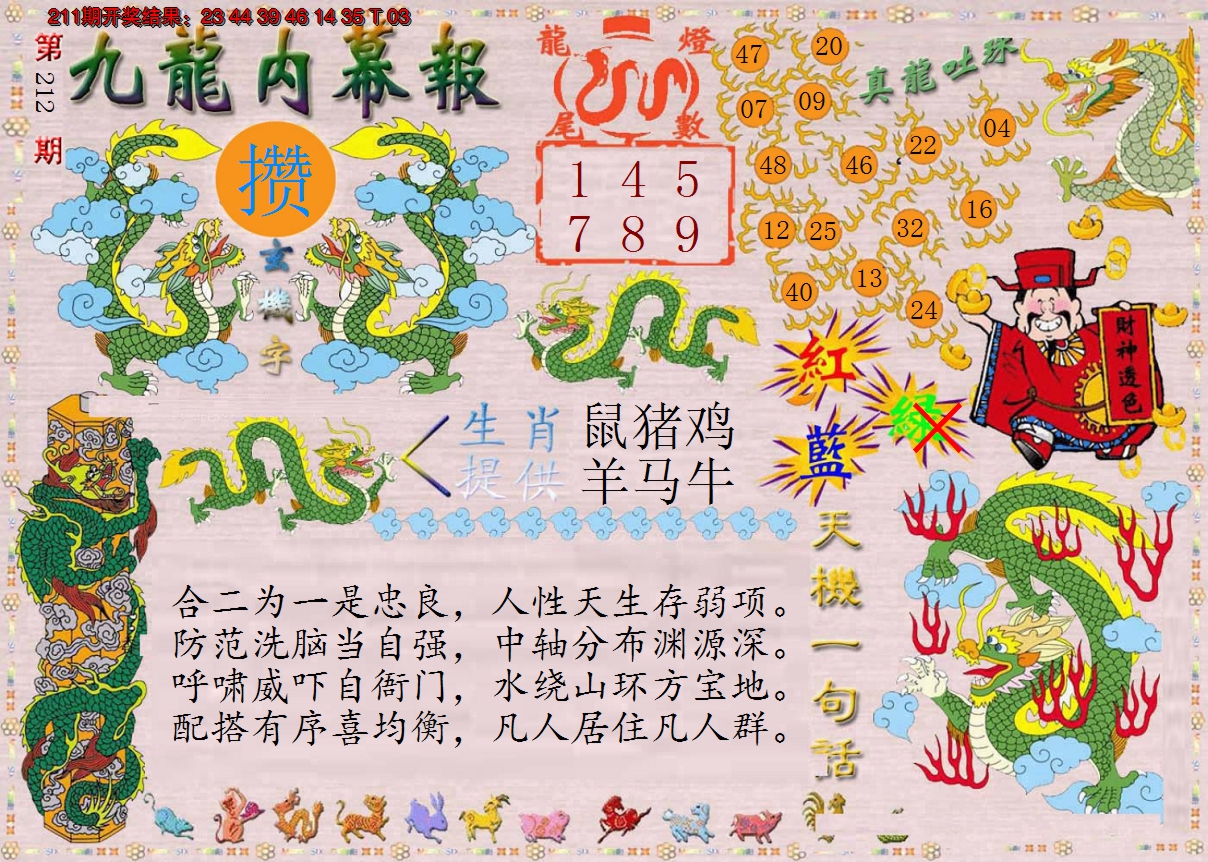 211期开奖结果：23 44 39 46 14 35 T 03
第212期
九龍内幕報
攒
玄機字
龍燈
尾數
1 4 5
7 8 9
47
20
真龍吐珠
07
09
22
04
48
46
16
12
25
32
13
40
24
財神透色
紅
綠
藍
生肖
提供
鼠猪鸡
羊马牛
天機一句话
合二为一是忠良，人性天生存弱项。
防范洗脑当自强，中轴分布渊源深。
呼啸威吓自衙门，水绕山环方宝地。
配搭有序喜均衡，凡人居住凡人群。